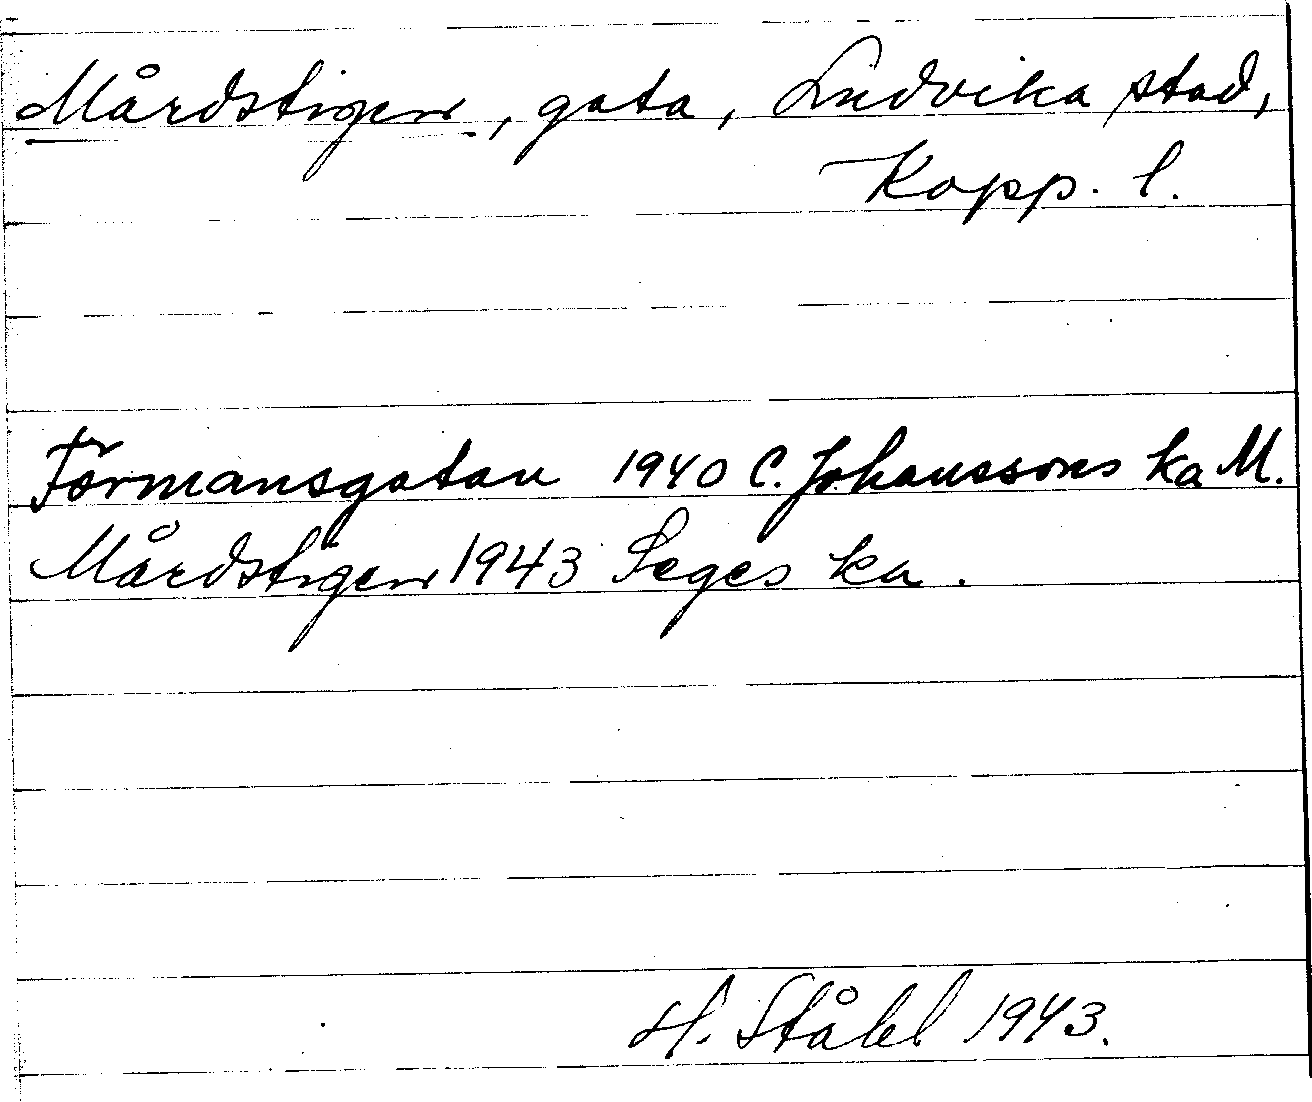 Mårdstigen, gata, Ludvika stad,
Kopp. l.
Förmansgatan 1940 C. Johanssons ka M.
Mårdstigen 1943 Seges ka.
H. Ståhl 1943.